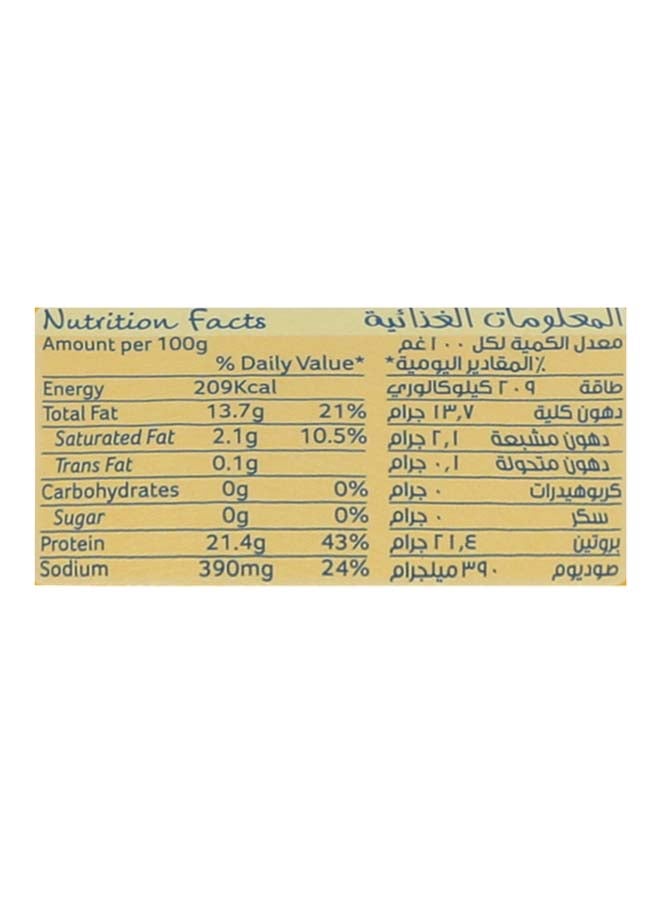 Nutrition Facts
Amount per 100g
% Daily Value*
Energy 209Kcal
Total Fat 13.7g 21%
Saturated Fat 2.1g 10.5%
Trans Fat 0.1g
Carbohydrates 0g 0%
Sugar 0g 0%
Protein 21.4g 43%
Sodium 390mg 24%
المعلومات الغذائية
معدل الكمية لكل ١٠٠غم
٪المقادير اليومية*
طاقة ٢٠٩ كيلوكالوري
دهون كلية ١٣,٧ جرام
دهون مشبعة ٢,١ جرام
دهون متحولة ٠,١ جرام
كربوهيدرات ٠ جرام
سكر ٠ جرام
بروتين ٢١,٤ جرام
صوديوم ٣٩٠ ميلجرام